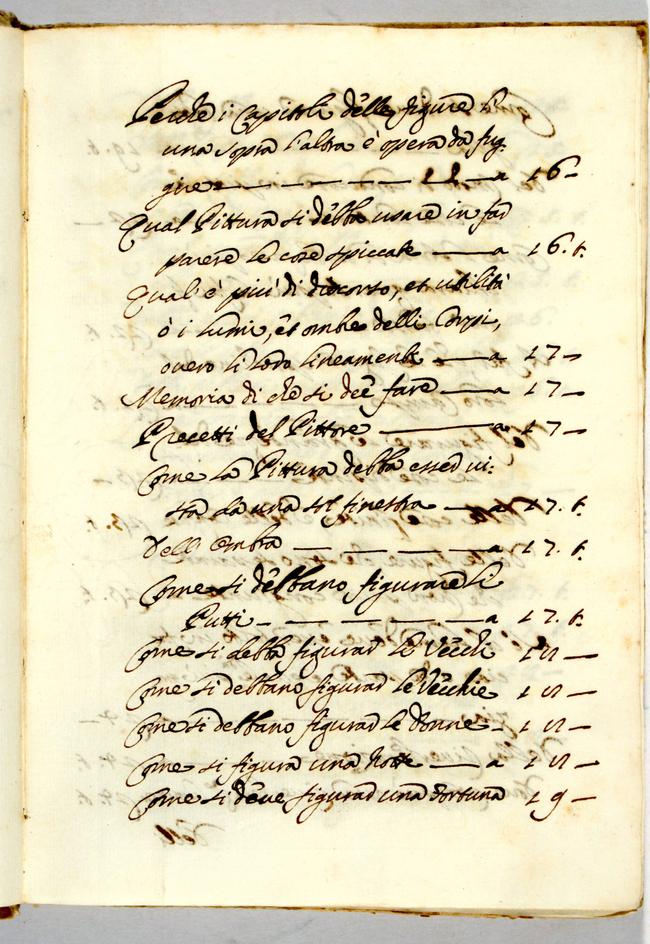 Perche i Capitoli delle figure l'
una sopra l'altra è opera da fug-
gire — — — — — a 16 —
Qual Pittura si debba usare in far
parere le cose spiccate — a 16. t.
Qual' è più di discorso, et utilità
ò i lumi, et ombre delli Corpi,
overo li loro lineamenti — a 17 —
Memoria di che si deè fare — a 17 —
Precetti del Pittore — a 17 —
Come la Pittura debba esser vi:
sta da una sol finestra — a 17. t.
Dell' Ombra — — — — a 17. t.
Come si debbano figurare li
Putti — — — — — a 17. t.
Come si debba figurar li Vecchi 18 —
Come si debbano figurar le Vecchie 18 —
Come si debbano figurar le donne - 18 —
Come si figura una Notte — a 18 —
Come si deve figurar una fortuna 19 —
Dell